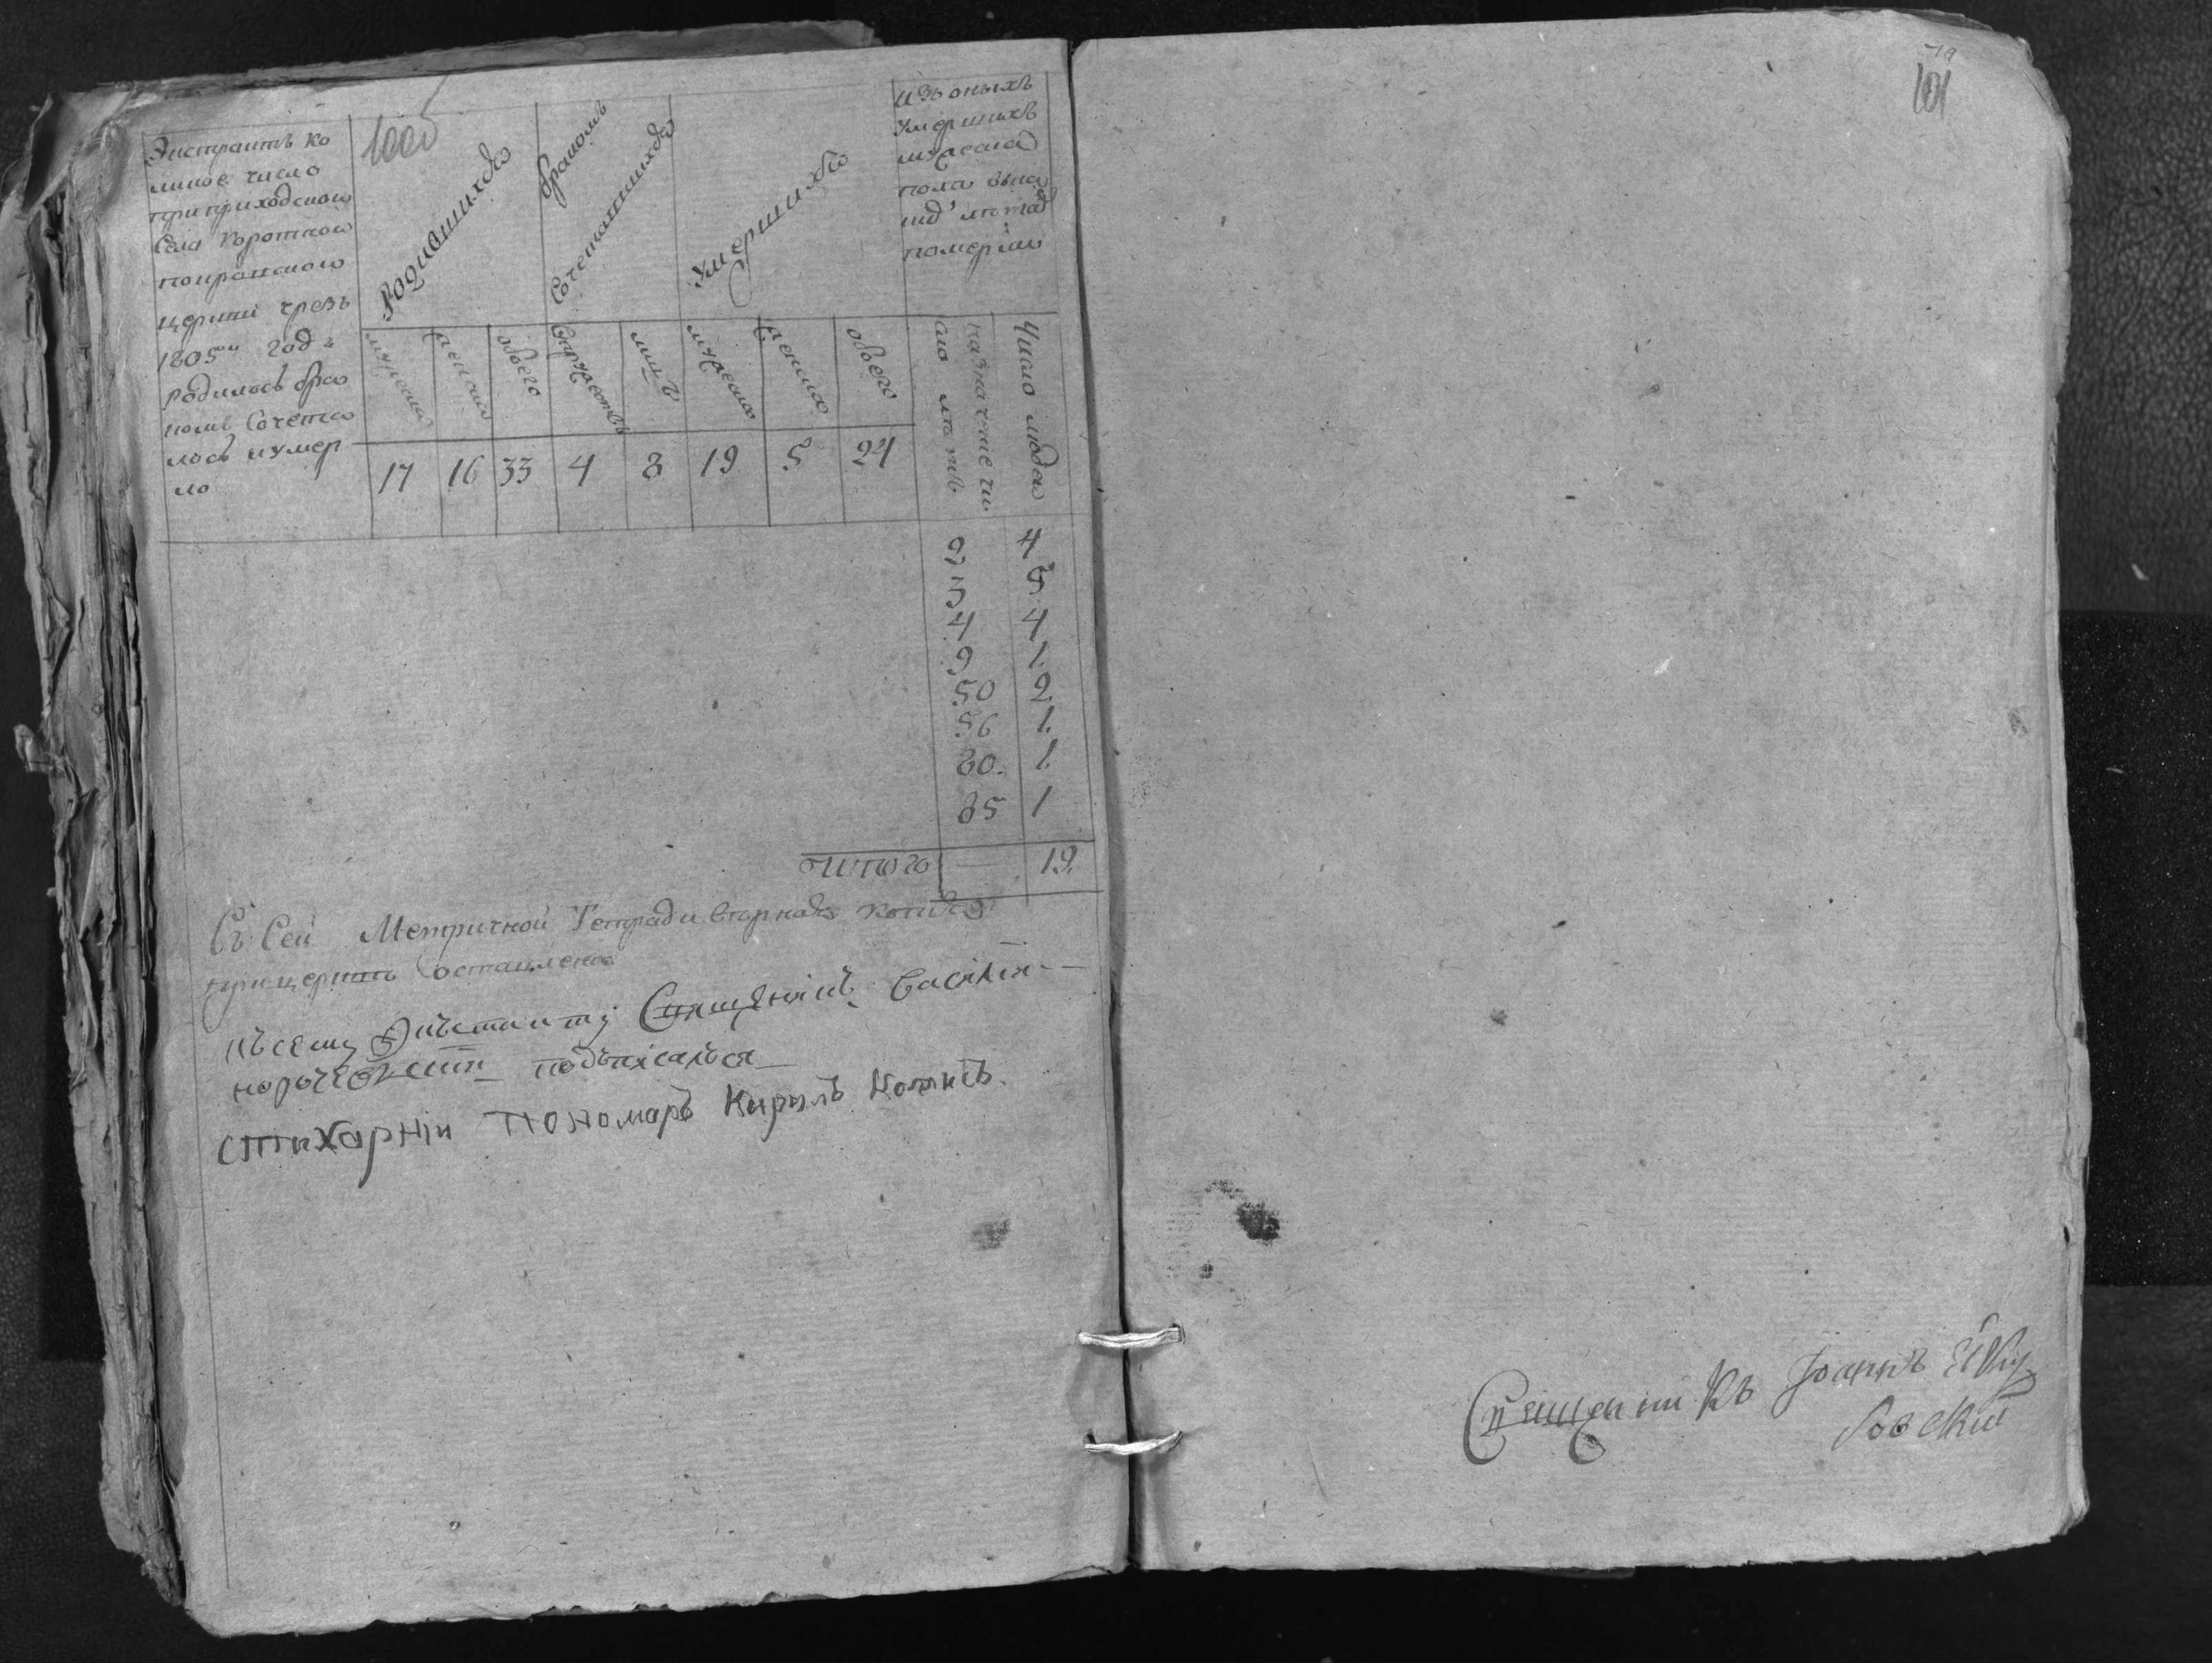 100об
Экстрактъ ко
ликое число
при приходской
Села Короткой
покровской
церкви чрезъ
1805й годъ
родилось бра
комъ Сочета
лось иумер
ло
Родившихся
бракомъ
Сочетавшихся
Умершихъ
изъ оныхъ
Умершихъ
мужеска
пола
померли
мужеска
женска
обоего
Супружествъ
лицъ
мужеска
женска
обоего
назначение чи
сло лѣтъ
Число людей
17 16 33 4 8 19 5 24
2 4
3 5
4 4
9 1
50 2
56 1
80 1
85 1
Итого — 19
Съ Сей Метричной Тетради вторная копия
прицеркви оставлена
къ сему Экстракту Священикъ Василій
подъписалъся
стихарній Пономаръ Кирилъ
101
Священникъ Іоаннъ